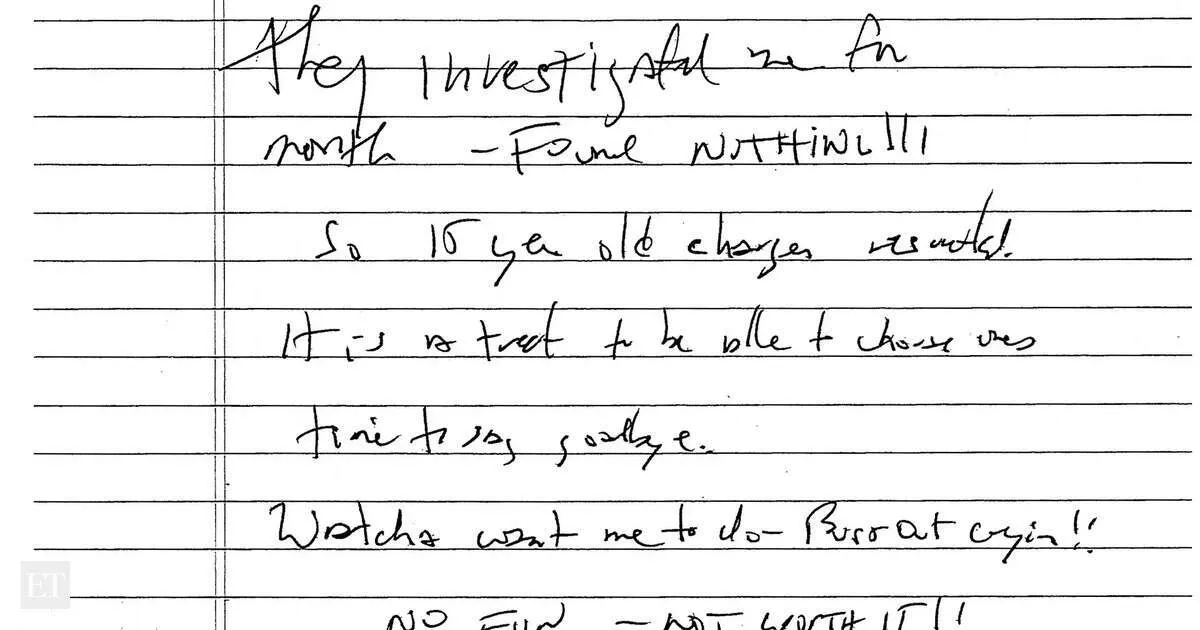 They investigated me for
month — Found NOTHING!!!
So 15 year old charges resulted.
It is a treat to be able to choose ones
time to say goodbye.
Watcha want me to do — Burst out cryin!!
NO FUN — NOT WORTH IT!!
ET